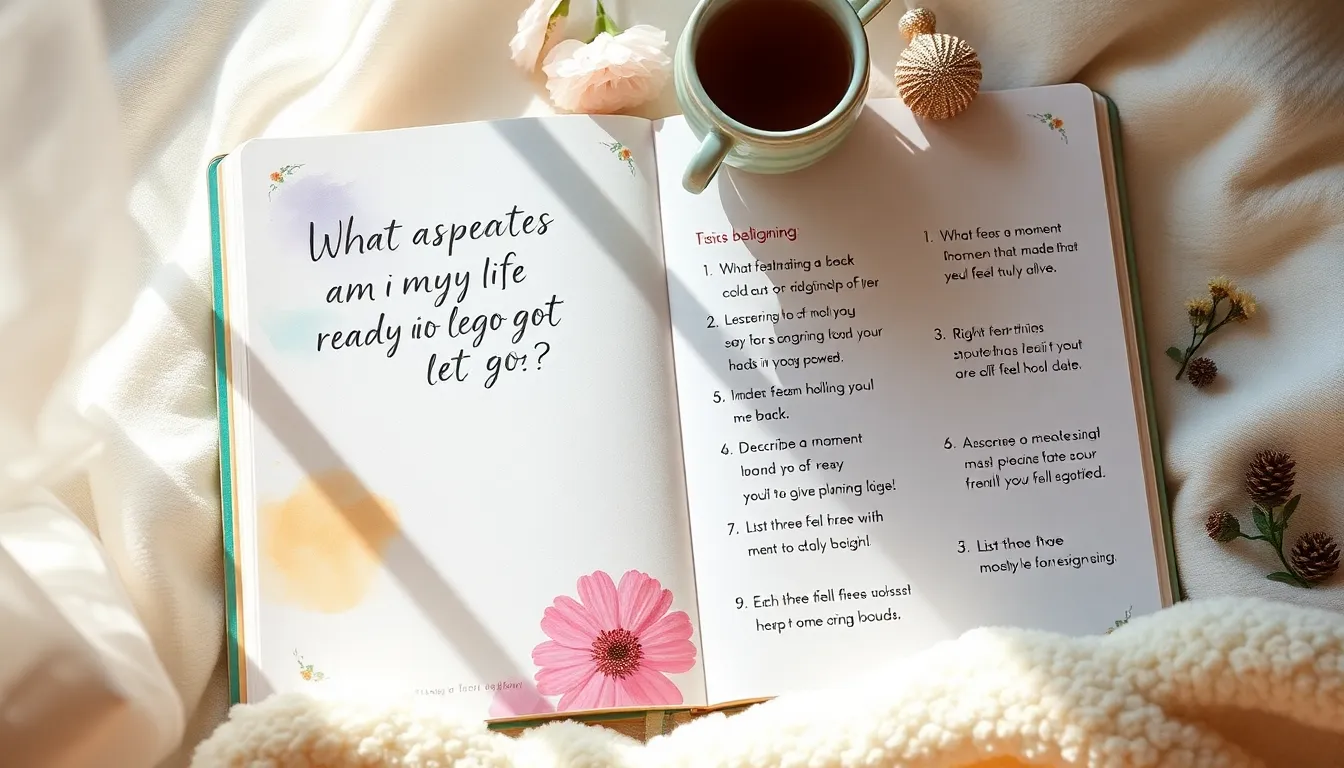 What aspeates
am i myy life
ready iio lego got
let go:?
Tsrics baligning:
1. What feafnating a back
cold cut or ridginlp of fyer
2. Lescering to of molyoy
say for s angring load your
hads in yoay powred.
5. Imder feam holling youl
me back.
6. Describe a moment
loand yo of reay
youl'l to give planing loge!
7. List three fel hree with
ment to cloly boighl.
9. Erch thee fiall fiees uohsst
herpt ome cring bouds,
1. What fees a moment
Inomen that mode that
yeul feel truly alive.
3. Right ferr thiies
spute thas lealit yout
are alf feel hool date.
6. Ascrrse a mealesingl
masl plecine fate sour
frenlll you fell egotied.
3. List thoe thve
mostly le foresigncing.